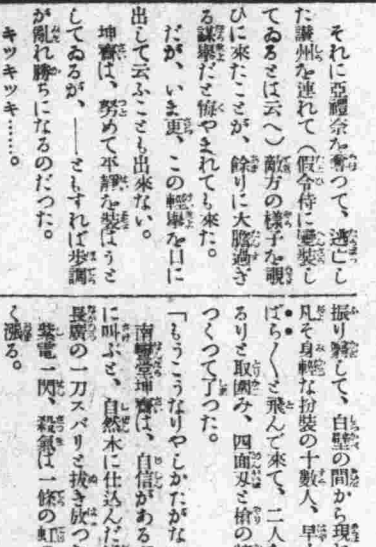 それに亞禮奈を奪つて、逃亡し
た讓州を連れて（假令侍に變裝し
てゐるとは云へ）敵方の樣子を覗
ひに來たことが、餘りに大膽過ぎ
る謀擧だと悔やまれても來た。
だが、いま更、この輕擧を口に
出して云ふことも出來ない。
坤齋は、努めて平靜を裝はうと
してゐるが、――ともすれば步調
が亂れ勝ちになるのだつた。
キツキツキ……。
振り翳して、白壁の間から現
凡そ身輕な扮裝の十數人、早
ばら／＼と飛んで來て、二人
るりと取圍み、四面刃と槍の
つくつて了つた。
「もうこうなりやしかたがな
南靈堂坤齋は、自信がある
に叫ぶと、自然木に仕込んだ
長廣の一刀スパリと拔き放つ
紫電一閃、殺氣は一條の虹
く漲る。